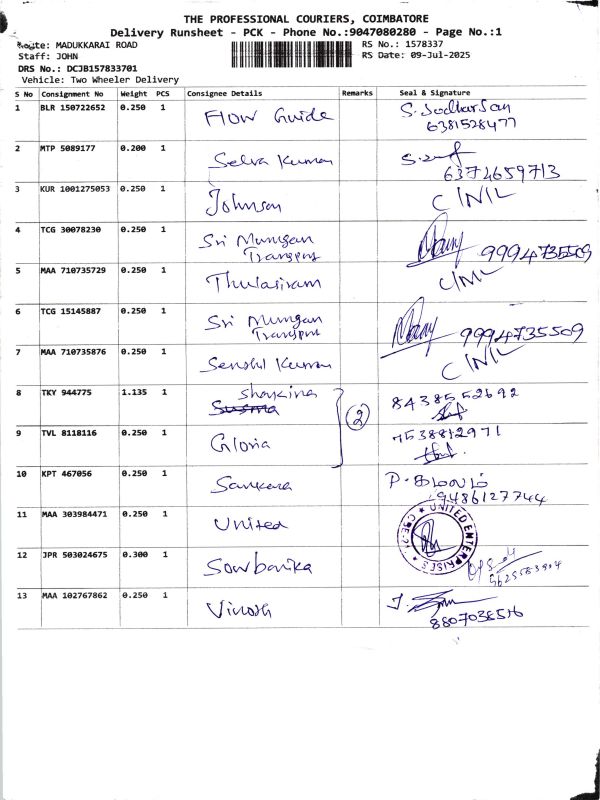 THE PROFESSIONAL COURIERS, COIMBATORE
Delivery Runsheet - PCK - Phone No.:9047080280 - Page No.:1
Route: MADUKKARAI ROAD
RS No.: 1578337
Staff: JOHN
RS Date: 09-Jul-2025
DRS No.: DCJB157833701
Vehicle: Two Wheeler Delivery
S No Consignment No Weight PCS Consignee Details Remarks Seal & Signature
1 BLR 150722652 0.250 1 Flow Guide S. Sodharsan
6381528477
2 MTP 5089177 0.200 1 Selva Kumar
6374659713
3 KUR 1001275053 0.250 1 Johnson C/NIL
4 TCG 30078230 0.250 1 Sri Murugan
Transport
9994735509
5 MAA 710735729 0.250 1 Thulasiram C/NIL
6 TCG 15145887 0.250 1 Sri Murugan
Transport
9994735509
7 MAA 710735876 0.250 1 Senthil Kumar C/NIL
8 TKY 944775 1.135 1 Sharkina
Susma
8438552692
2
9 TVL 8118116 0.250 1 Gloria 7538812971
10 KPT 467056 0.250 1 Sankara P. கமலம்
9486127744
11 MAA 303984471 0.250 1 United
UNITED ENTERPRISES
12 JPR 503024675 0.300 1 Sowbarika
13 MAA 102767862 0.250 1 Vinoth
8807038516